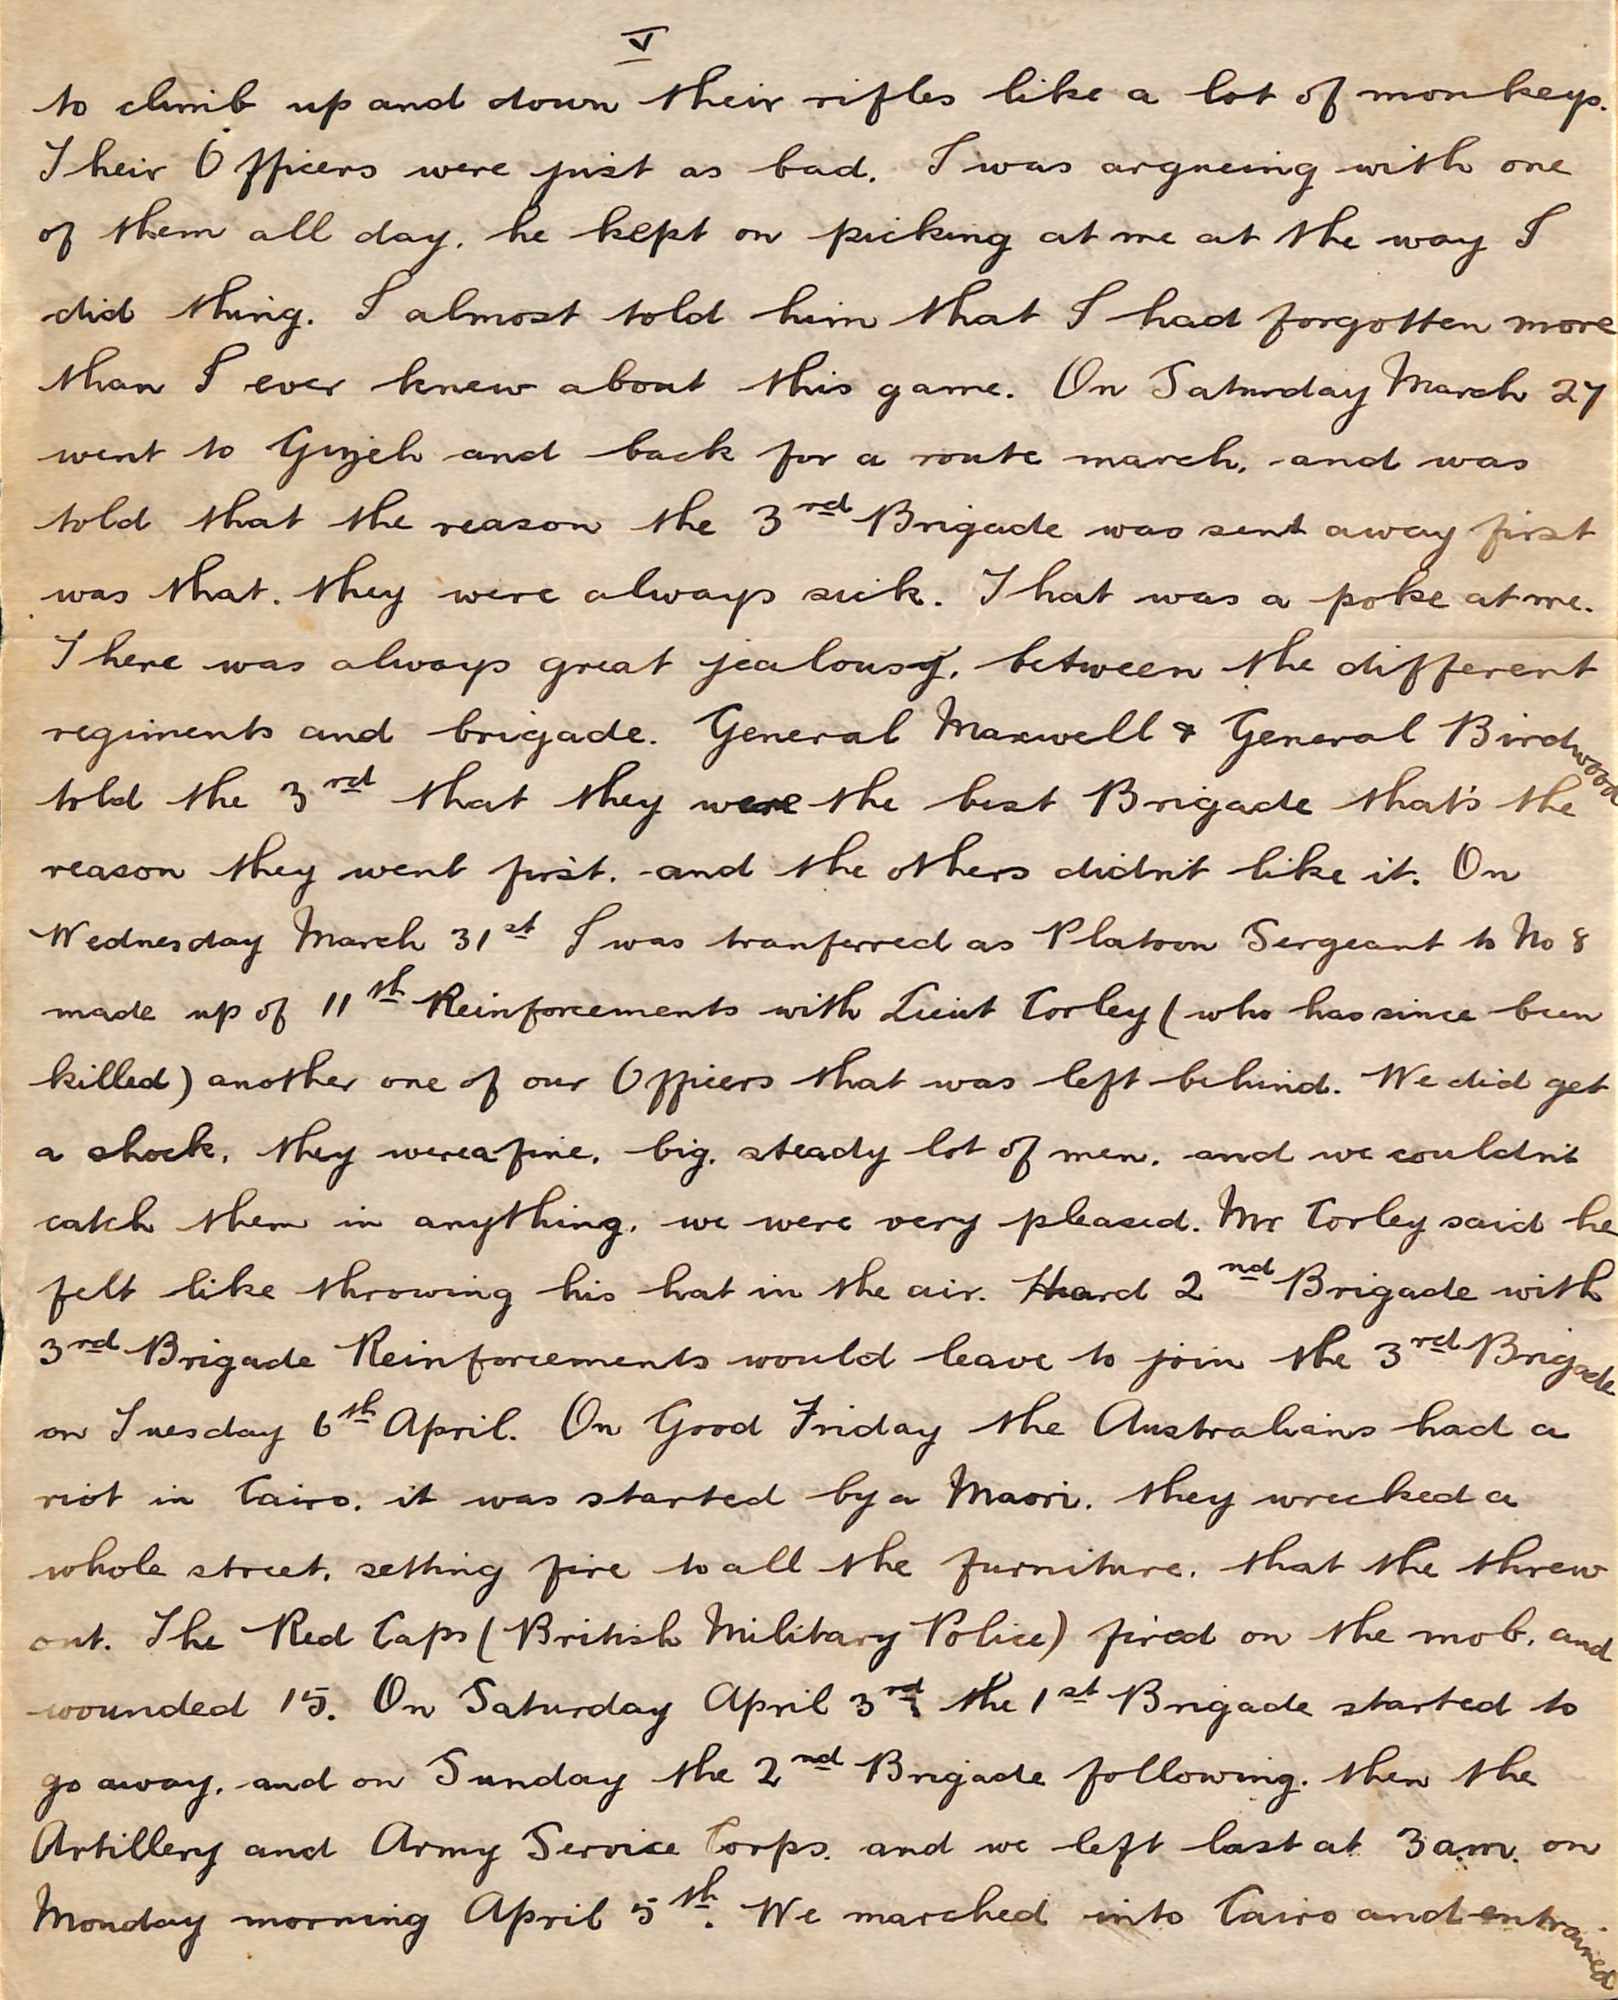 V
to climb up and down their rifles like a lot of monkeys.
Their Officers were just as bad. I was argueing with one
of them all day. he kept on picking at me at the way I
did thing. I almost told him that I had forgotten more
than I ever knew about this game. On Saturday March 27
went to Guyeh and back for a route march. and was
told that the reason the 3rd Brigade was sent away first
was that. they were always sick. That was a poke at me.
There was always great jealousy. between the different
regiments and brigade. General Maxwell & General Birdwood
told the 3rd that they were the best Brigade that's the
reason they went first. and the others didn't like it. On
Wednesday March 31st I was tranferred as Platoon Sergeant to No 8
made up of 11th Reinforcements with Lieut Corley (who has since been
killed) another one of our Officers that was left behind. We did get
a shock. they were a fine. big. steady lot of men. and we couldn't
catch them in anything. we were very pleased. Mr Corley said he
felt like throwing his hat in the air. Heard 2nd Brigade with
3rd Brigade Reinforcements would leave to join the 3rd Brigade
on Tuesday 6th April. On Good Friday the Australians had a
riot in Cairo. it was started by a Maori. they wrecked a
whole street. setting fire to all the furniture. that the threw
out. The Red Caps (British Military Police) fired on the mob. and
wounded 15. On Saturday April 3rd. the 1st Brigade started to
go away. and on Sunday the 2nd Brigade following. then the
Artillery and Army Service Corps. and we left last at 3 a.m. on
Monday morning April 5th. We marched into Cairo and entrained